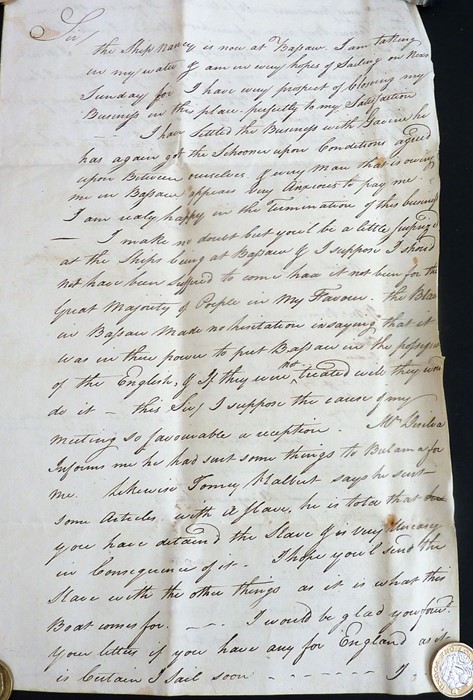 Sir,
the Ship Nancy is now at Bassaw. I am taking
in my water & am in every hopes of Sailing on Next
Sunday for I have every prospect of Closing my
Business in this place perfectly to my Satisfaction
— I have Settled the Business with he
has again got the Schooner upon Conditions agreed
upon Between ourselves. & every Man that is owing
me in Bassaw appears very Anxious to pay me.
I am realy happy in the Termination of this business
— I make no doubt but you'll be a little surprized
at the Ships being at Bassaw & I suppose I should
not have been suffered to come haa it not been for the
Great Majority of People in My Favour. the
in Bassaw made no hisitation in saying that it
was in there power to put Bassaw in the possession
of the English, & if they were not treated well they would
do it — this Sir, I suppose the cause of my
meeting so favourable a reception. Mr
Informs me he had sent some things to Bulama for
me. likewise Tomey says he sent
some Articles with a Slave, he is told that
you have detain'd the Slave & is very uneasy
in Consequence of it. I hope you'l send the
Slave with the other things as it is what this
Boat comes for. — I would be glad you
your letters if you have any for England as it
is Certain I sail soon - - - - - - - I